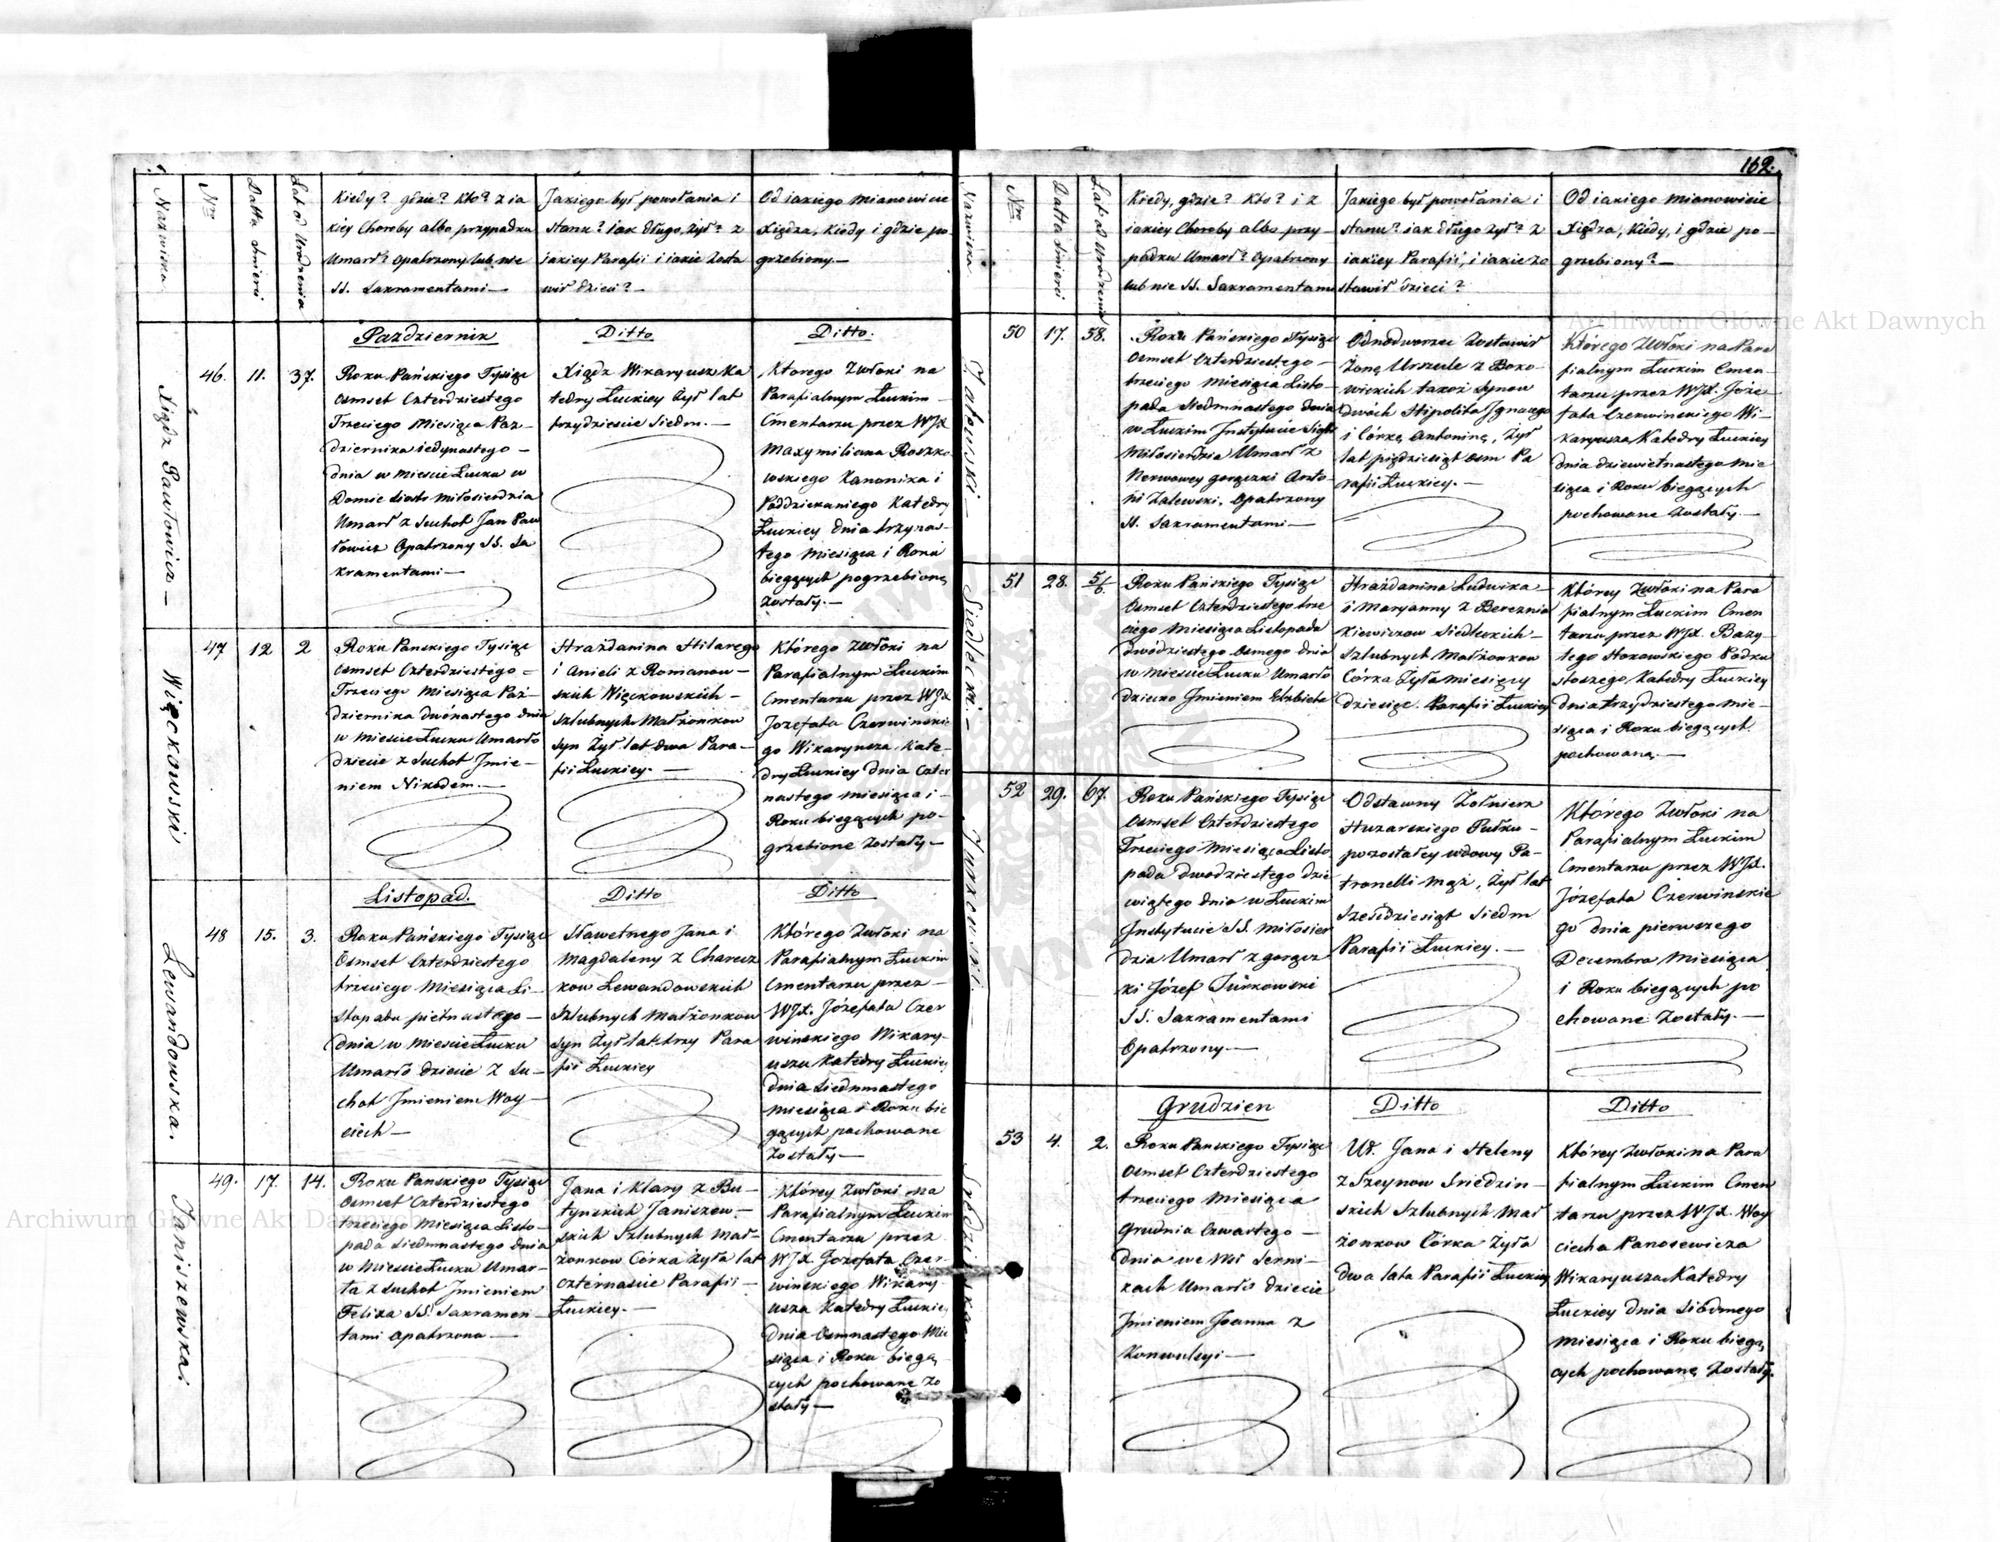 162.
Nazwiska
Nro
Datta Śmierci
Lat od Urodzenia
Kiedy? gdzie? Kto? z ia
kiey Choroby albo przypadku
Umarł? opatrzony lub nie
SS. Sakramentami—
Jakiego był powołania i
stanu? iak długo żył? z
jakiey Parafii i iakie zosta
wił dzieci?—
Od iakiego mianowicie
Xiędza, kiedy i gdzie po
grzebiony.—
Październik
Ditto
Ditto.
Xiądz Pawłowicz—
46.
11.
37.
Roku Pańskiego Tysiąc
Osmset Czterdziestego
Trzeciego Miesiąca Paz-
dziernika iedynastego—
dnia w Miescie Łucku w
Domie Siostr Miłosierdnia
Umarł z Suchot Jan Paw
łowicz Opatrzony SS. Sa
kramentami—
Xiądz Wikaryusz Ka
tedry Łuckiey był lat
trzydziescie Siedm.—
Ktorego Zwłoki na
Parafialnym Łuckim—
Cmentarzu przez WJX
Maxymiliana Roszko
wskiego Kanonika i
Poddziekaniego Katedry
Łuckiey dnia trzynas-
tego Miesiąca i Roku
biegących pogrzebioną
Zostały.—
Więckowski
47
12
2
Roku Panskiego Tysiąc
Osmset Czterdziestego=
Trzeciego Miesiąca Paź-
dziernika dwónastego dnia
w Miescie Łucku Umarło
dziecie z Suchot Jmie-
niem Nikodem.—
Hrażdanina Hilarego
i Anieli z Romanow-
skich Więckowskich-
Szlubnych Małżonkow
syn Żył lat dwa Para-
fii Łuckiey.—
Którego Zwłoki na
Parafialnym Łuckim
Cmentarzu przez WJX
Jozefata Czerwinskie
go Wikaryusza Kate-
dry Łuckiey dnia Czter
nastego miesiąca i-
Roku biegących po-
grzebione Zostały—
Listopad.
Ditto
Ditto
Lewandowska.
48
15.
3.
Roku Pańskiego Tysiąc
Osmset Czterdziestego
trzeciego Miesiąca Li-
stopada pietnastego—
dnia w Miescie Łucku
Umarło dziecie z Su-
chot Jmieniem Woy-
ciech—
Sławetnego Jana i
Magdaleny z Charecz
kow Lewandowskich
Szlubnych Małżonkow
syn Żył lat trzy Para
fii Łuckiey
Którego Zwłoki na
Parafialnym Łuckim
Cmentarzu przez—
WJX. Józefata Czer
winskiego Wikary-
usza Katedry Łuckiey
dnia Siedmnastego
miesiąca i Roku bie
gących pochowane
Zostały—
Janiszewskai
49.
17.
14.
Roku Panskiego Tysiąc
Osmset Czterdziestego
trzeciego Miesiąca Listo-
pada Siedmnastego dnia
w Miescie Łucku Umar-
ła z Suchot Jmieniem
Felixa SS. Sakramen-
tami opatrzona—
Jana i Klary z Bu-
tynskich Janiszew-
skich Szlubnych Mał-
żonkow Córka żyła lat
czternascie Parafii—
Łuckiey.—
Którey Zwłoki na
Parafialnym Łuckim
Cmentarzu przez
WJX Jozefata Czer-
winskiego Wikary-
usza Katedry Łuckiey
Dnia Osmnastego Mie
siąca i Roku biegą-
cych pochowane Zo
stały—
Nazwiska
Nro
Datta Śmierci
Lat od Urodzenia
Kiedy, gdzie? Kto? i z
iakiey Choroby albo przy-
padku Umarł? Opatrzony
lub nie SS. Sakramentami
Jakiego był powołania i
stanu? iak długo żył? z
iakiey Parafii, i iakie zo
stawił dzieci?
Od iakiego mianowicie
Xiędza, Kiedy, i gdzie po-
grzebiony?—
Zalewski—
50
17.
58.
Roku Pańskiego Tysiąc
Osmset Czterdziestego—
trzeciego miesiąca Listo-
pada Siedmnastego dnia
w Łuckim Instytucie Sióstr
Miłosierdzia Umarł z
Nerwowey gorączki Anto-
ni Zalewski. Opatrzony
SS. Sakramentami—
Odnodworzec Zostawił
Żonę Urszule z Boko-
wickich takoż synow
dwóch Hipolita Jgnacego
i Córkę Antoninę, Żył
lat pięćdziesiąt osm Pa
rafii Łuckiey.—
Którego Zwłoki na Para
fialnym Łuckim Cmen-
tarzu przez WJX. Joze-
fata Czerwinskiego Wi-
karyusza Katedry Łuckiey
dnia dziewietnastego mie
siąca i Roku biegących
pochowane Zostały.—
Siedlecki.—
51
28.
5/6.
Roku Pańskiego Tysiąc
Osmset Czterdziestego trze
ciego Miesiąca Listopada
dwódziestego Osmego dnia
w Miescie Łucku Umarło
dziecko Jmieniem Elzbieta
Hrażdanina Ludwika
i Maryanny z Berezni
kiewiczow Siedleckich—
Szlubnych Małżonkow
Córka Żyła miesięcy
dziesięc. Parafii Łuckiey
Którey Zwłoki na Para
fialnym Łuckim Cmen
tarzu przez WJX. Bazy-
lego Podku
stoszego, Katedry Łuckiey
dnia trzydziestego Mie-
siąca i Roku biegących
pochowaną.—
Jurkowski.
52
29.
67.
Roku Pańskiego Tysiąc
Osmset Czterdziestego
Trzeciego Miesiąca Listo
pada dwodziestego dzie
wiątego dnia w Łuckim
Jnstytucie SS. Miłosier
dzia Umarł z gorącz
ki Józef Jurkowski
SS. Sakramentami
Opatrzony.—
Odstawny Żołnierz
Huzarskiego Pułku-
pozostałey wdowy Pe-
tronelli mąż, Żył lat
Sześćdziesiąt Siedm
Parafii Łuckiey.—
Którego Zwłoki na
Parafialnym Łuckim
Cmentarzu przez WJX.
Józefata Czerwinskie
go dnia pierwszego
Decembra Miesiąca
i Roku biegących po
chowane Zostały.—
Grudzien
Ditto
Ditto
53
4.
2.
Roku Panskiego Tysiąc
Osmset Czterdziestego
trzeciego Miesiąca
Grudnia Czwartego—
dnia we Wsi Serni-
kach Umarło dziecie
Jmieniem Joanna z
Konwulsyi—
Ur. Jana i Heleny
z Szeynow Sriedzin-
skich Szlubnych Mał
żonkow Córka Żyła
dwa lata Parafii Łuckiey
Którey Zwłoki na Para
fialnym Łuckim Cmen
tarzu przez WJX. Woy
ciecha Panosewicza
Wikaryusza Katedry
Łuckiey dnia Siódmego
Miesiąca i Roku biegą
cych pochowaną Zostały.
Archiwum Główne Akt Dawnych
Archiwum Główne Akt Dawnych